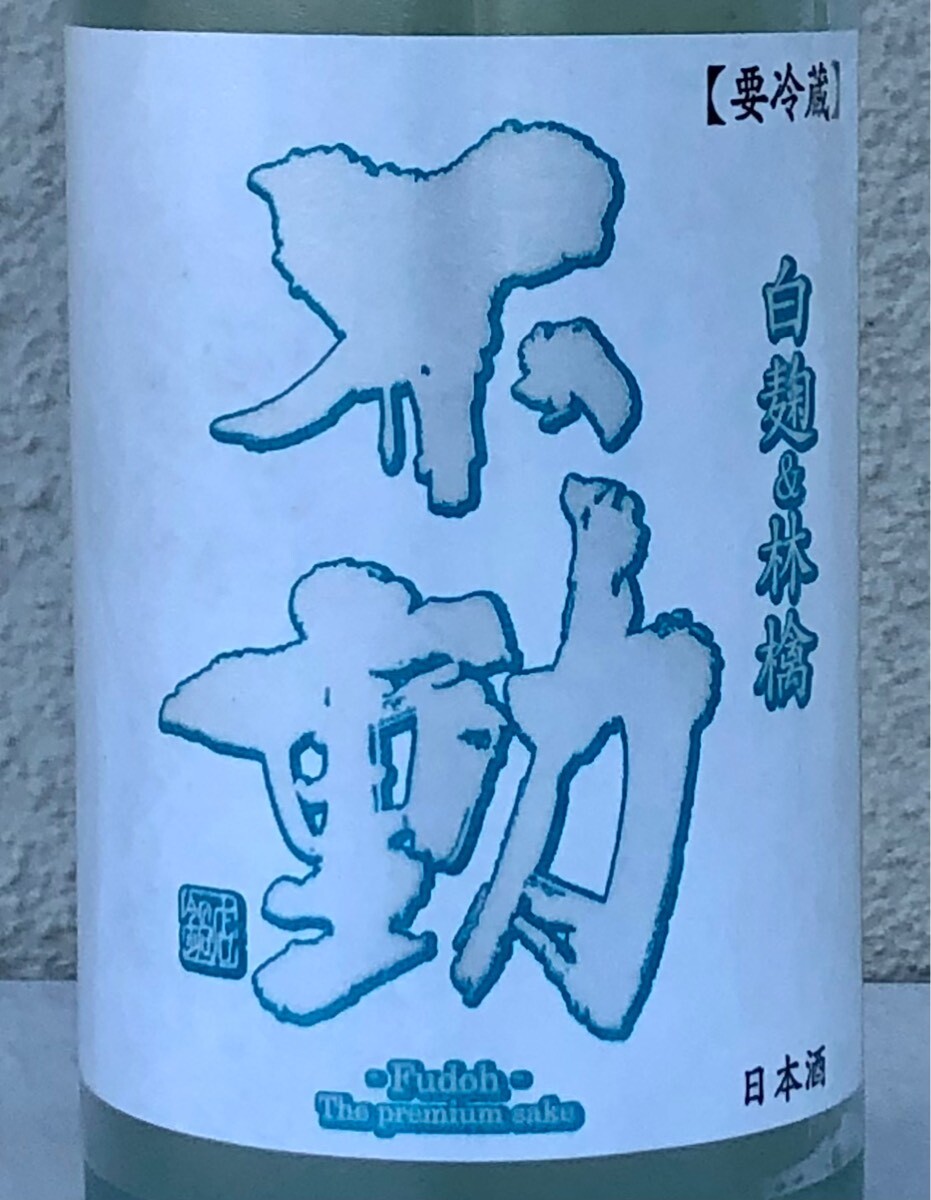 【要冷蔵】
白麹&林檎
不動
- Fudoh -
The premium sake
日本酒